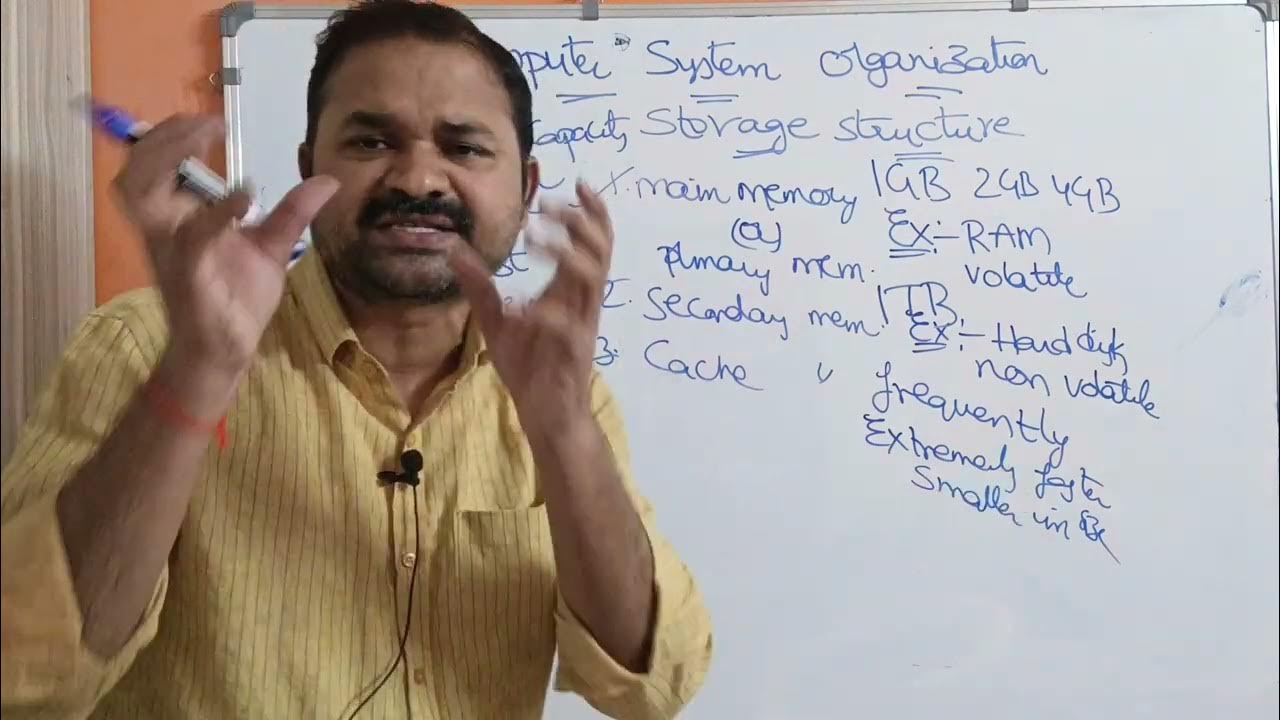 mputer System Organization
Capacity Storage structure
1. main memory 1GB 2GB 4GB
(or) Ex:- RAM
primary mem. volatile
2. Secondary mem. 1TB
Ex:- Hard disk
non volatile
3. Cache "
frequently
Extremely faster
Smaller in